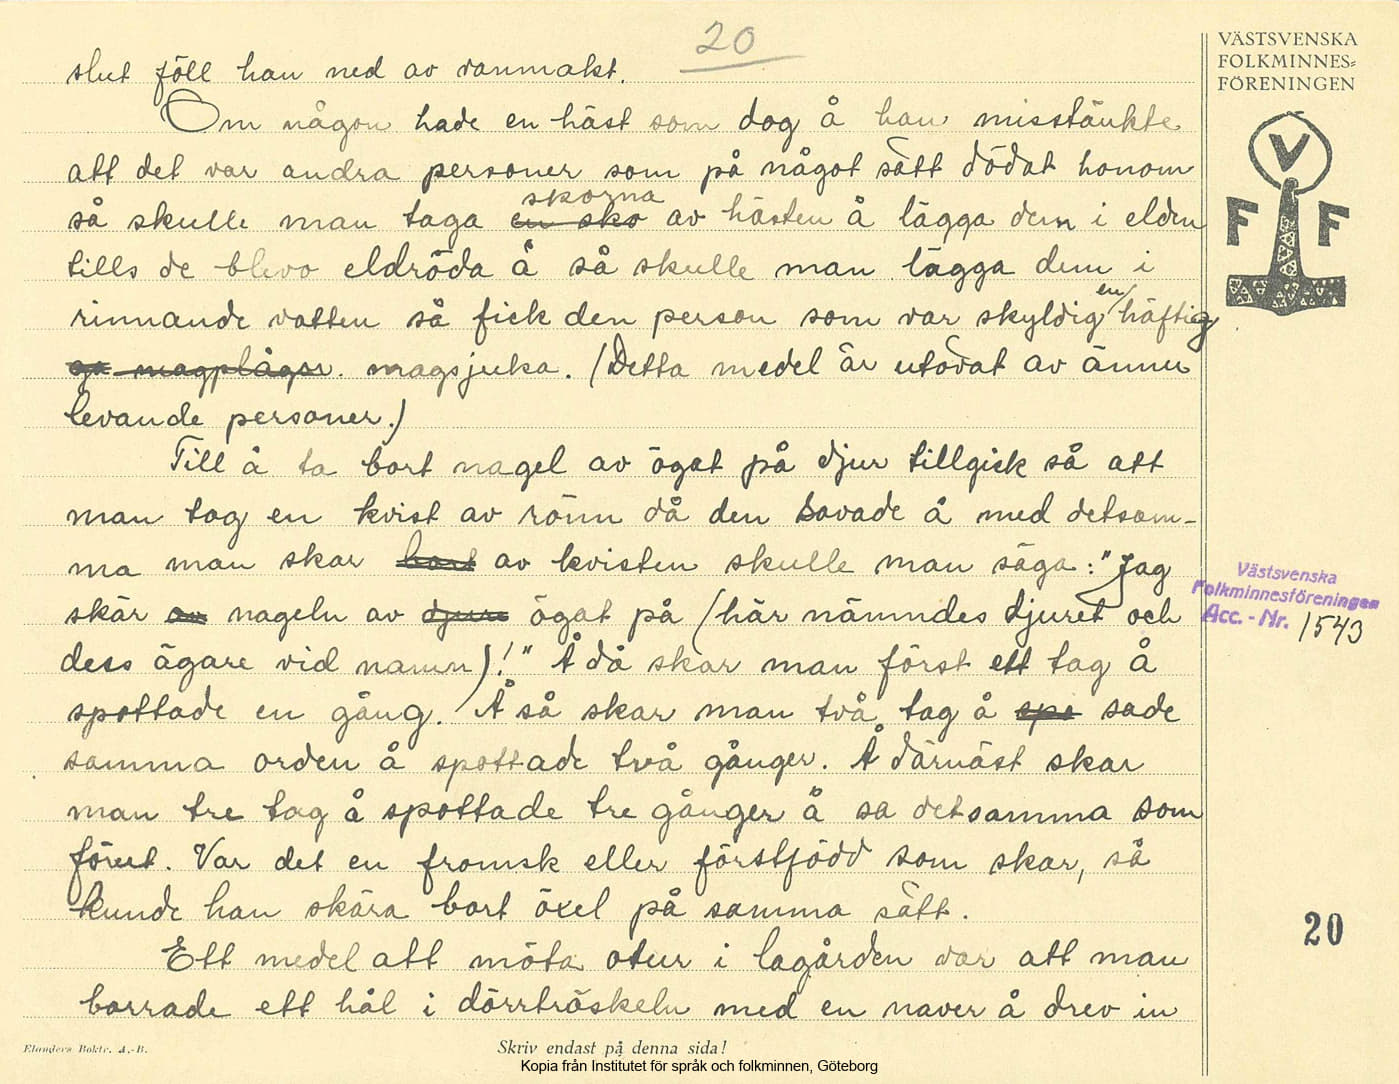 20
VÄSTSVENSKA
FOLKMINNES=
FÖRENINGEN
V
F F
slut föll han ned av vanmakt.
Om någon hade en häst som dog å han misstänkte
att det var andra personer som på något sätt dödat honom
så skulle man taga en sko skorna av hästen å lägga dem i elden
tills de blevo eldröda å så skulle man lägga dem i
rinnande vatten så fick den person som var skyldig en häftig
magplågor. magsjuka. (Detta medel är utövat av ännu
levande personer.)
Till å ta bort nagel av ögat på djur tillgick så att
man tog en kvist av rönn då den savade å med detsam-
ma man skar bort av kvisten skulle man säga: "Jag
skär av nageln av djure ögat på (här nämndes djuret och
dess ägare vid namn)!" Å då skar man först ett tag å
spottade en gång. Å så skar man två tag å spo sade
samma orden å spottade två gånger. Å därnäst skar
man tre tag å spottade tre gånger å sa detsamma som
förut. Var det en fromsk eller förstfödd som skar, så
kunde han skära bort öxel på samma sätt.
Ett medel att möta otur i lagården var att man
borrade ett hål i dörrtröskeln med en naver å drev in
Västsvenska
Folkminnesföreningen
Acc.-Nr. 1543
20
Elanders Boktr. A.-B.
Skriv endast på denna sida!
Kopia från Institutet för språk och folkminnen, Göteborg